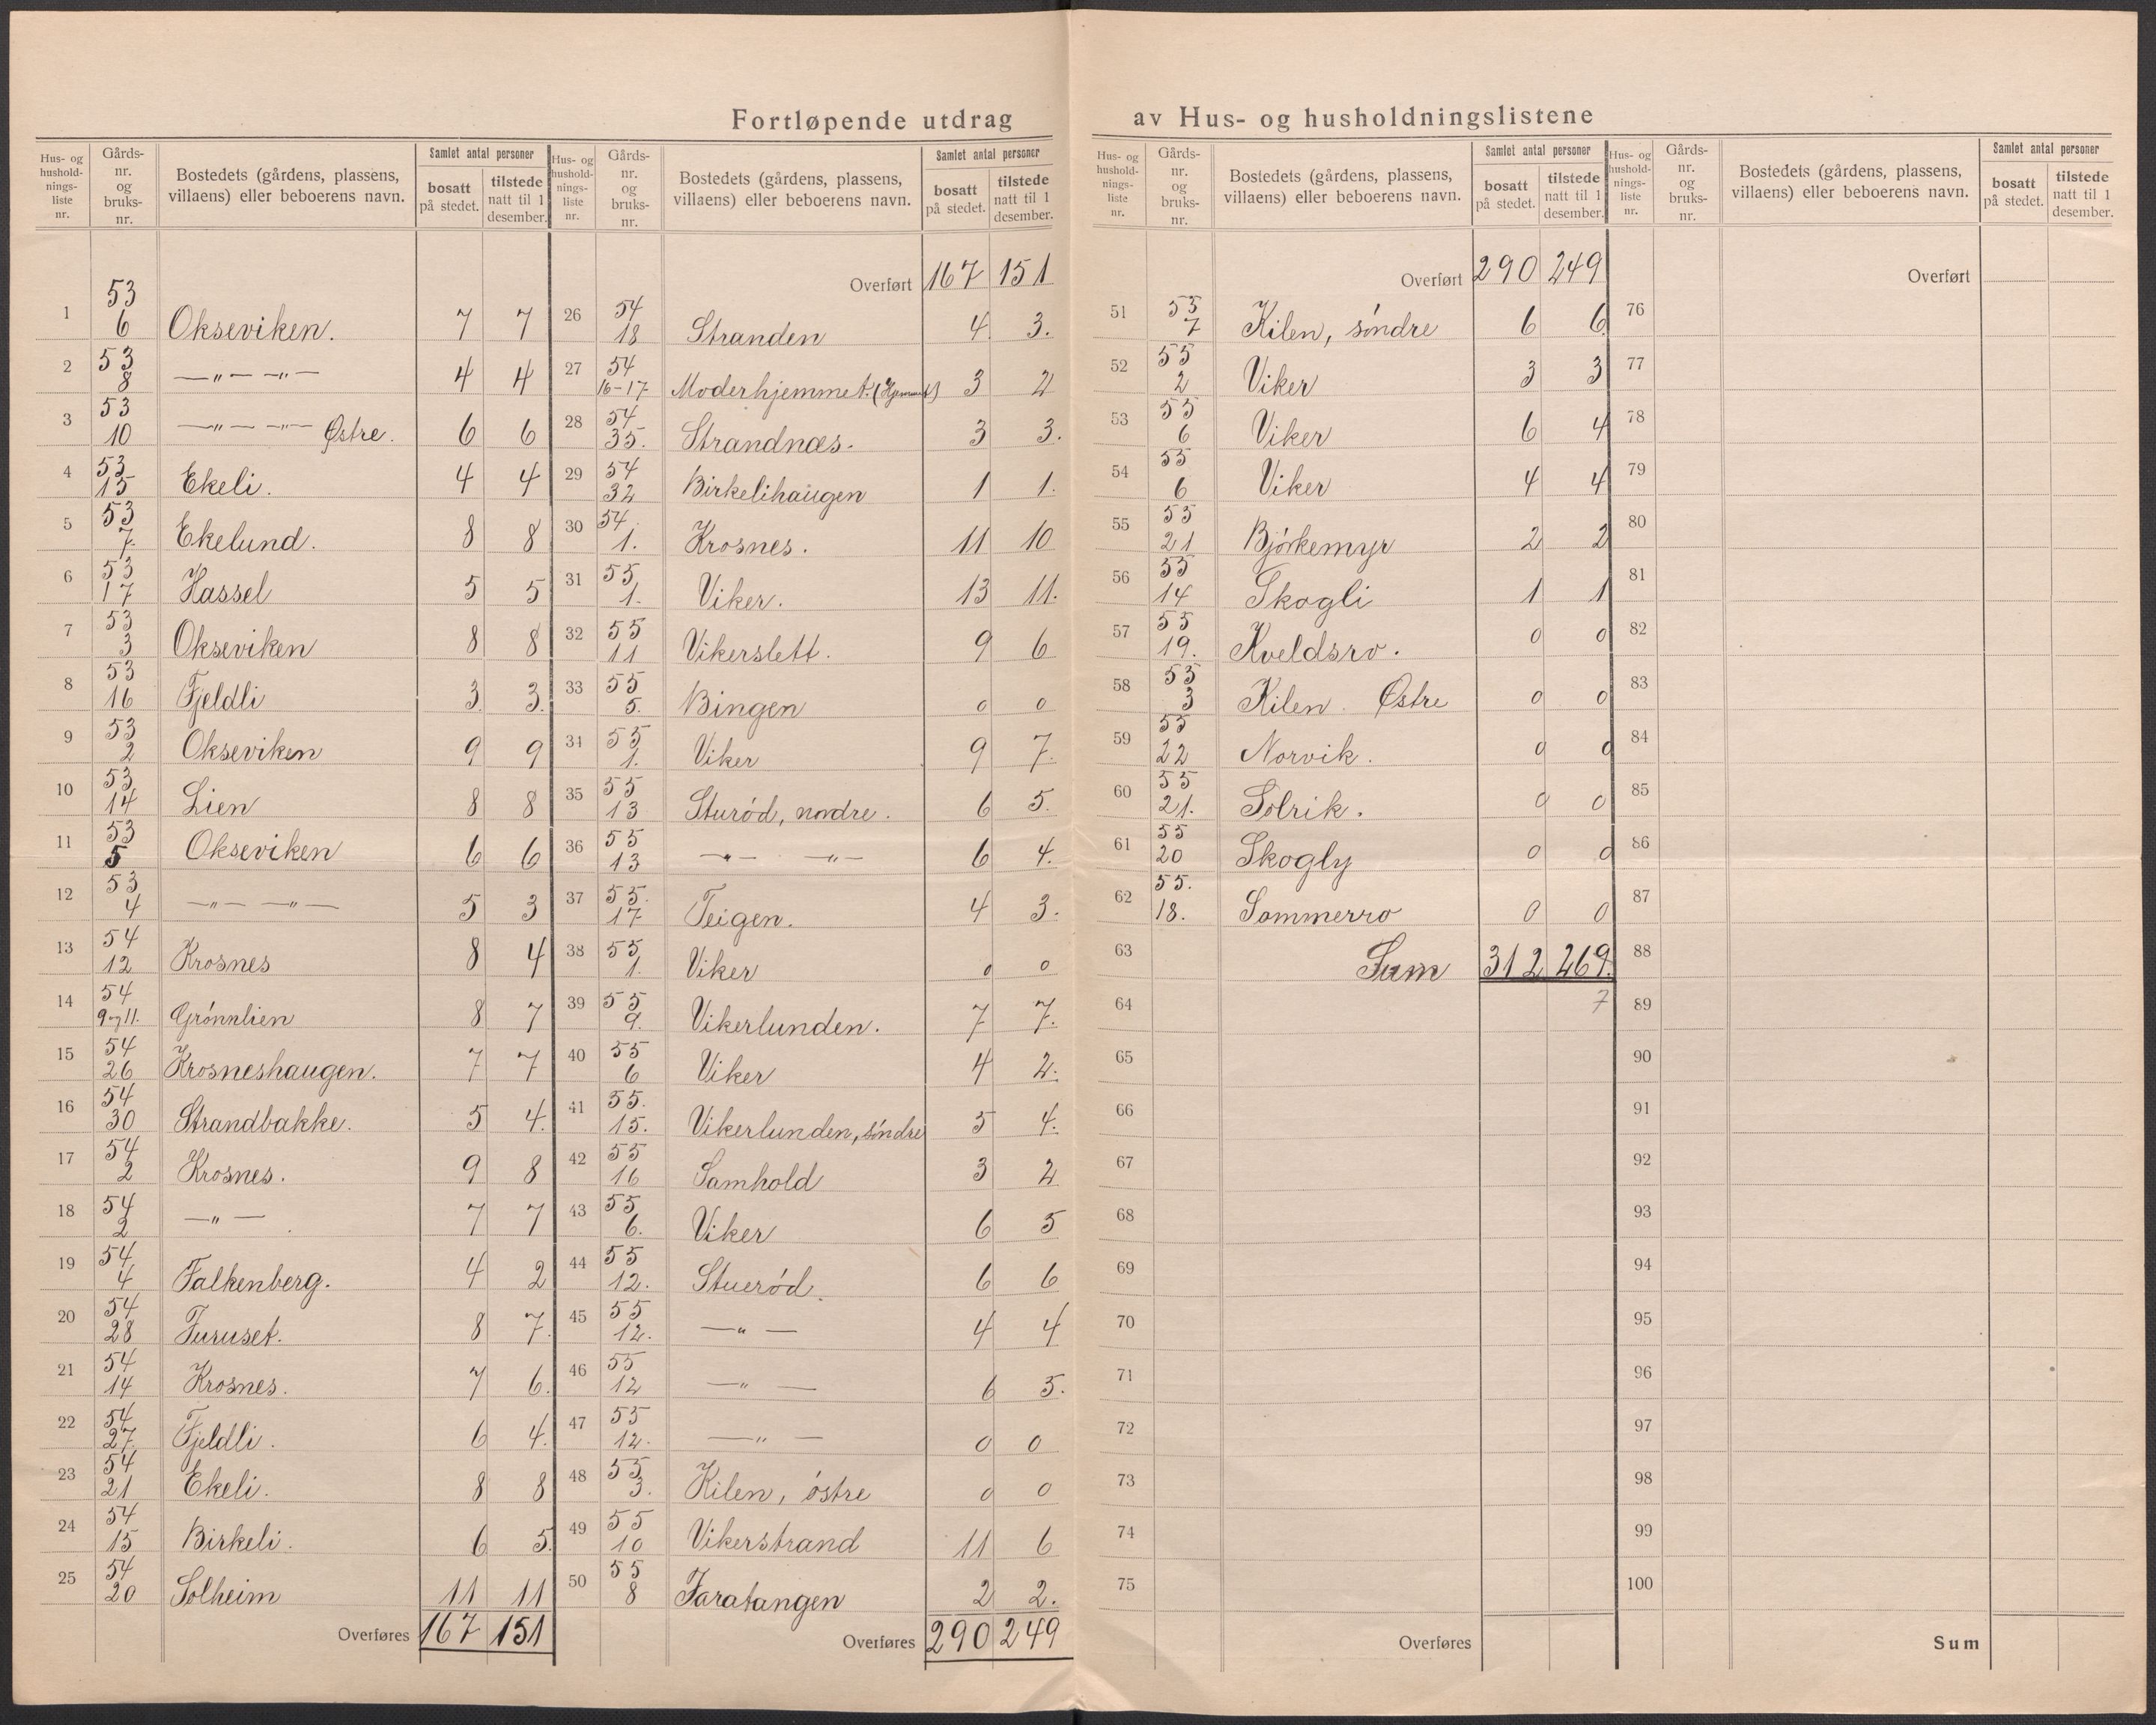 Fortløpende utdrag av Hus- og husholdningslistene
Hus- og husholdnings-liste nr. | Gårds-nr. og bruks-nr. | Bostedets (gårdens, plassens, villaens) eller beboerens navn. | Samlet antal personer bosatt på stedet. | tilstede natt til 1 desember.
1 53 6 Okseviken. 7 7
2 53 8 —"— —"— 4 4
3 53 10 —"— —"— Østre. 6 6
4 53 15 Ekeli. 4 4
5 53 7. Ekelund. 8 8
6 53 17 Hassel 5 5
7 53 3 Okseviken 8 8
8 53 16 Fjeldli 3. 3.
9 53 2 Okseviken 9 9
10 53 14 Lien 8 8
11 53 5 Okseviken 6 6
12 53 4 —"— —"— 5 3
13 54 12 Krosnes 8 4
14 54 9 og 11. Grønnlien 8 7
15 54 26 Krosneshaugen. 7 7
16 54 30 Strandbakke. 5 4.
17 54 2 Krosnes. 9 8
18 54 2 —"— 7 7
19 54 4 Falkenberg. 4 2
20 54 28 Furuset. 8 7.
21 54 14 Krosnes. 7 6.
22 54 27 Fjeldli. 6 4.
23 54 21 Ekeli. 8 8
24 54 15 Birkeli. 6 5.
25 54 20 Solheim 11 11
Overføres 167 151
Hus- og husholdnings-liste nr. | Gårds-nr. og bruks-nr. | Bostedets (gårdens, plassens, villaens) eller beboerens navn. | Samlet antal personer bosatt på stedet. | tilstede natt til 1 desember.
Overført 167 151
26 54 18 Stranden 4 3.
27 54 16-17 Moderhjemmet. (Hjemmet) 3 2
28 54 35. Strandnæs. 3 3.
29 54 32 Birkelihaugen 1 1.
30 54. 1. Krosnes. 11 10
31 55 1. Viker. 13 11.
32 55 11 Vikerslett. 9 6
33 55 5. Bingen 0 0
34 55 1. Viker 9 7.
35 55 13 Sturød, nordre. 6 5.
36 55 13 —"— —"— 6 4.
37 55. 17 Teigen. 4 3.
38 55 1. Viker 0 0
39 55 9. Vikerlunden. 7 7.
40 55 6 Viker 4 2.
41 55. 15. Vikerlunden, søndre 5 4.
42 55 16 Samhold 3 2
43 55 6. Viker 6 5
44 55 12. Stuerød. 6 6
45 55 12. —"— 4 4
46 55 12 —"— 6 5.
47 55 12. —"— 0 0
48 55 3. Kilen, østre 0 0
49 55 10 Vikerstrand 11 6
50 55 8 Faratangen 2 2.
Overføres 290 249
Hus- og husholdnings-liste nr. | Gårds-nr. og bruks-nr. | Bostedets (gårdens, plassens, villaens) eller beboerens navn. | Samlet antal personer bosatt på stedet. | tilstede natt til 1 desember.
Overført 290 249
51 55 7 Kilen, søndre 6 6
52 55 2 Viker 3 3
53 55 6 Viker 6 4
54 55 6 Viker 4 4
55 55 21 Bjørkemyr 2 2
56 55 14 Skogli 1 1
57 55 19. Kveldsro. 0 0
58 55 3 Kilen. Østre 0 0
59 55 22 Norvik. 0 0
60 55 21. Solvik. 0 0
61 55 20 Skogly 0 0
62 55. 18. Sommerro 0 0
63 Sum 312 269.
64 7
65
66
67
68
69
70
71
72
73
74
75
Overføres
Hus- og husholdnings-liste nr. | Gårds-nr. og bruks-nr. | Bostedets (gårdens, plassens, villaens) eller beboerens navn. | Samlet antal personer bosatt på stedet. | tilstede natt til 1 desember.
Overført
76
77
78
79
80
81
82
83
84
85
86
87
88
89
90
91
92
93
94
95
96
97
98
99
100
Sum